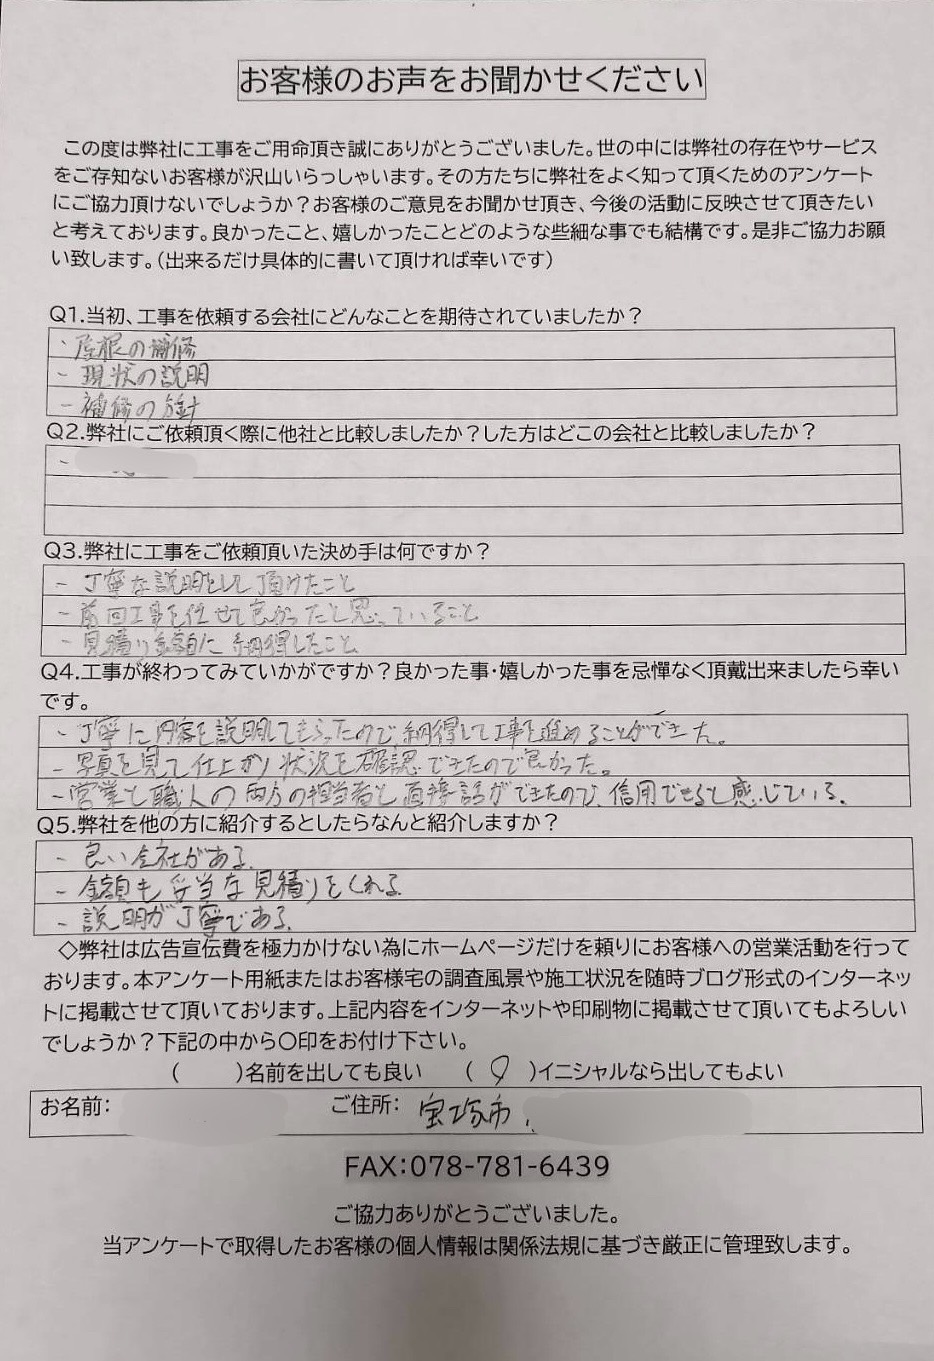 お客様のお声をお聞かせください
この度は弊社に工事をご用命頂き誠にありがとうございました。世の中には弊社の存在やサービス
をご存知ないお客様が沢山いらっしゃいます。その方たちに弊社をよく知って頂くためのアンケート
にご協力頂けないでしょうか？お客様のご意見をお聞かせ頂き、今後の活動に反映させて頂きたい
と考えております。良かったこと、嬉しかったことどのような些細な事でも結構です。是非ご協力お願
い致します。(出来るだけ具体的に書いて頂ければ幸いです)
Q1.当初、工事を依頼する会社にどんなことを期待されていましたか？
- 屋根の補修
- 現状の説明
- 補修の方針
Q2.弊社にご依頼頂く際に他社と比較しましたか？した方はどこの会社と比較しましたか？
-
Q3.弊社に工事をご依頼頂いた決め手は何ですか？
- 丁寧な説明をして頂けたこと
- 前回工事を任せて良かったと思っていること
- 見積り金額に納得したこと
Q4.工事が終わってみていかがですか？良かった事・嬉しかった事を忌憚なく頂戴出来ましたら幸い
です。
- 丁寧に内容を説明してもらったので、納得して工事を進めることができた。
- 写真を見て仕上がり状況を確認できたので良かった。
- 営業と職人の両方の担当者と直接話ができたので、信用できると感じている。
Q5.弊社を他の方に紹介するとしたらなんと紹介しますか？
- 良い会社がある。
- 金額も妥当な見積りをくれる
- 説明が丁寧である。
◇弊社は広告宣伝費を極力かけない為にホームページだけを頼りにお客様への営業活動を行って
おります。本アンケート用紙またはお客様宅の調査風景や施工状況を随時ブログ形式のインターネッ
トに掲載させて頂いております。上記内容をインターネットや印刷物に掲載させて頂いてもよろしい
でしょうか？下記の中から〇印をお付け下さい。
(　　)名前を出しても良い　(〇)イニシャルなら出してもよい
お名前:　ご住所: 宝塚市
FAX:078-781-6439
ご協力ありがとうございました。
当アンケートで取得したお客様の個人情報は関係法規に基づき厳正に管理致します。